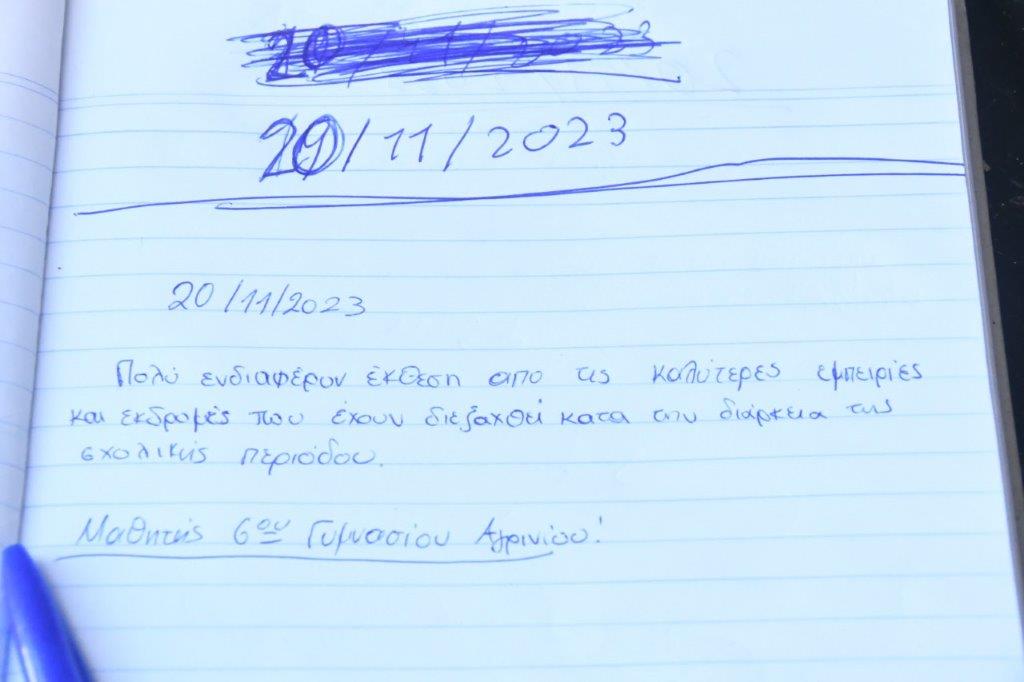 20/11/2023
20/11/2023
20/11/2023
Πολύ ενδιαφέρον έκθεση απο τις καλύτερες εμπειρίες
και εκδρομές που έχουν διεξαχθεί κατα την διάρκεια της
σχολικής περιόδου.
Μαθητής 6ου Γυμνασίου Αγρινίου!